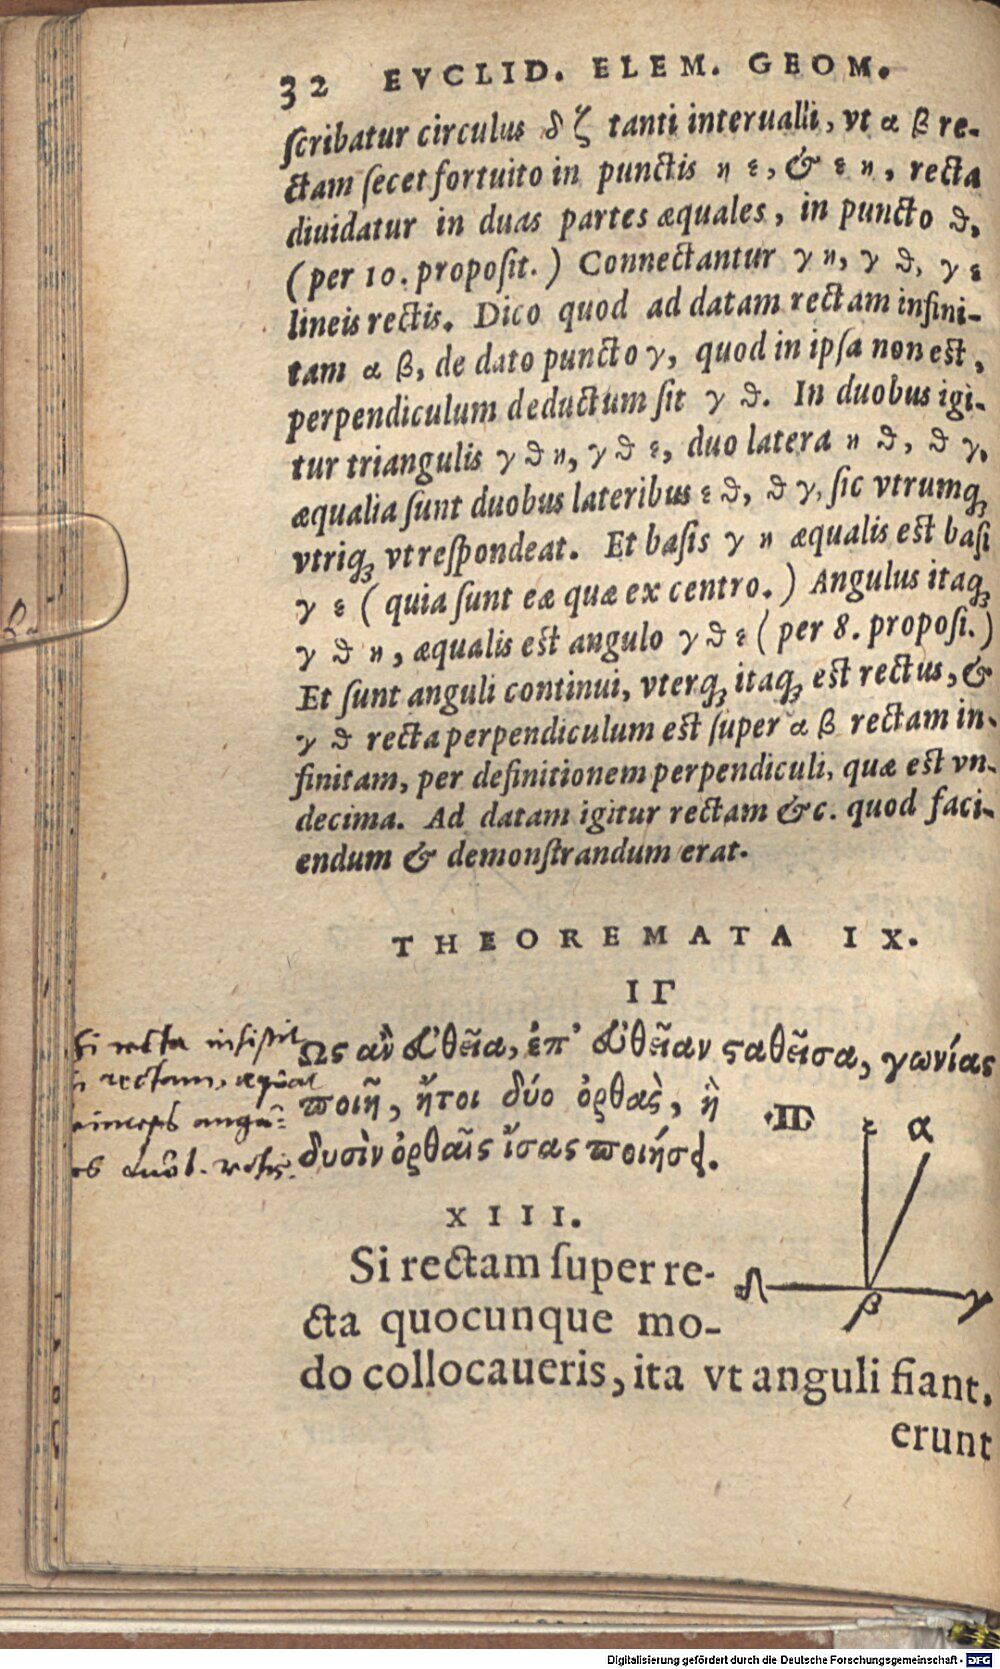 32 EVCLID. ELEM. GEOM.
ſcribatur circulus δ ζ tanti interualli, vt α β re-
ctam ſecet fortuito in punctis η ε, & ε η, recta
diuidatur in duas partes æquales, in puncto ϑ,
(per 10. propoſit.) Connectantur γ η, γ ϑ, γ ε
lineis rectis. Dico quod ad datam rectam infini-
tam α β, de dato puncto γ, quod in ipſa non eſt,
perpendiculum deductum ſit γ ϑ. In duobus igi-
tur triangulis γ ϑ η, γ ϑ ε, duo latera η ϑ, ϑ γ,
æqualia ſunt duobus lateribus ε ϑ, ϑ γ, ſic vtrumqꝫ
vtriqꝫ vt reſpondeat. Et baſis γ η æqualis eſt baſi
γ ε (quia ſunt eæ quæ ex centro.) Angulus itaqꝫ
γ ϑ η, æqualis eſt angulo γ ϑ ε (per 8. propoſi.)
Et ſunt anguli continui, vterqꝫ itaqꝫ eſt rectus, &
γ ϑ recta perpendiculum eſt ſuper α β rectam in-
finitam, per definitionem perpendiculi, quæ eſt vn-
decima. Ad datam igitur rectam &c. quod faci-
endum & demonſtrandum erat.
THEOREMATA IX.
ΙΓ
Ὡς ἂν εὐθεῖα, ἐπ' εὐθεῖαν ςαθεῖσα, γωνίας
ποιῇ, ἤτοι δύο ὀρθας, ἢ
δυσὶν ὀρθαῖς ἴσας ποιήσει.
si recta insistit
rectam, æqual
angu
rectis.
XIII.
Si rectam ſuper re-
cta quocunque mo-
do collocaueris, ita vt anguli fiant,
erunt
ε α
δ β γ
Digitalisierung gefördert durch die Deutsche Forschungsgemeinschaft - DFG